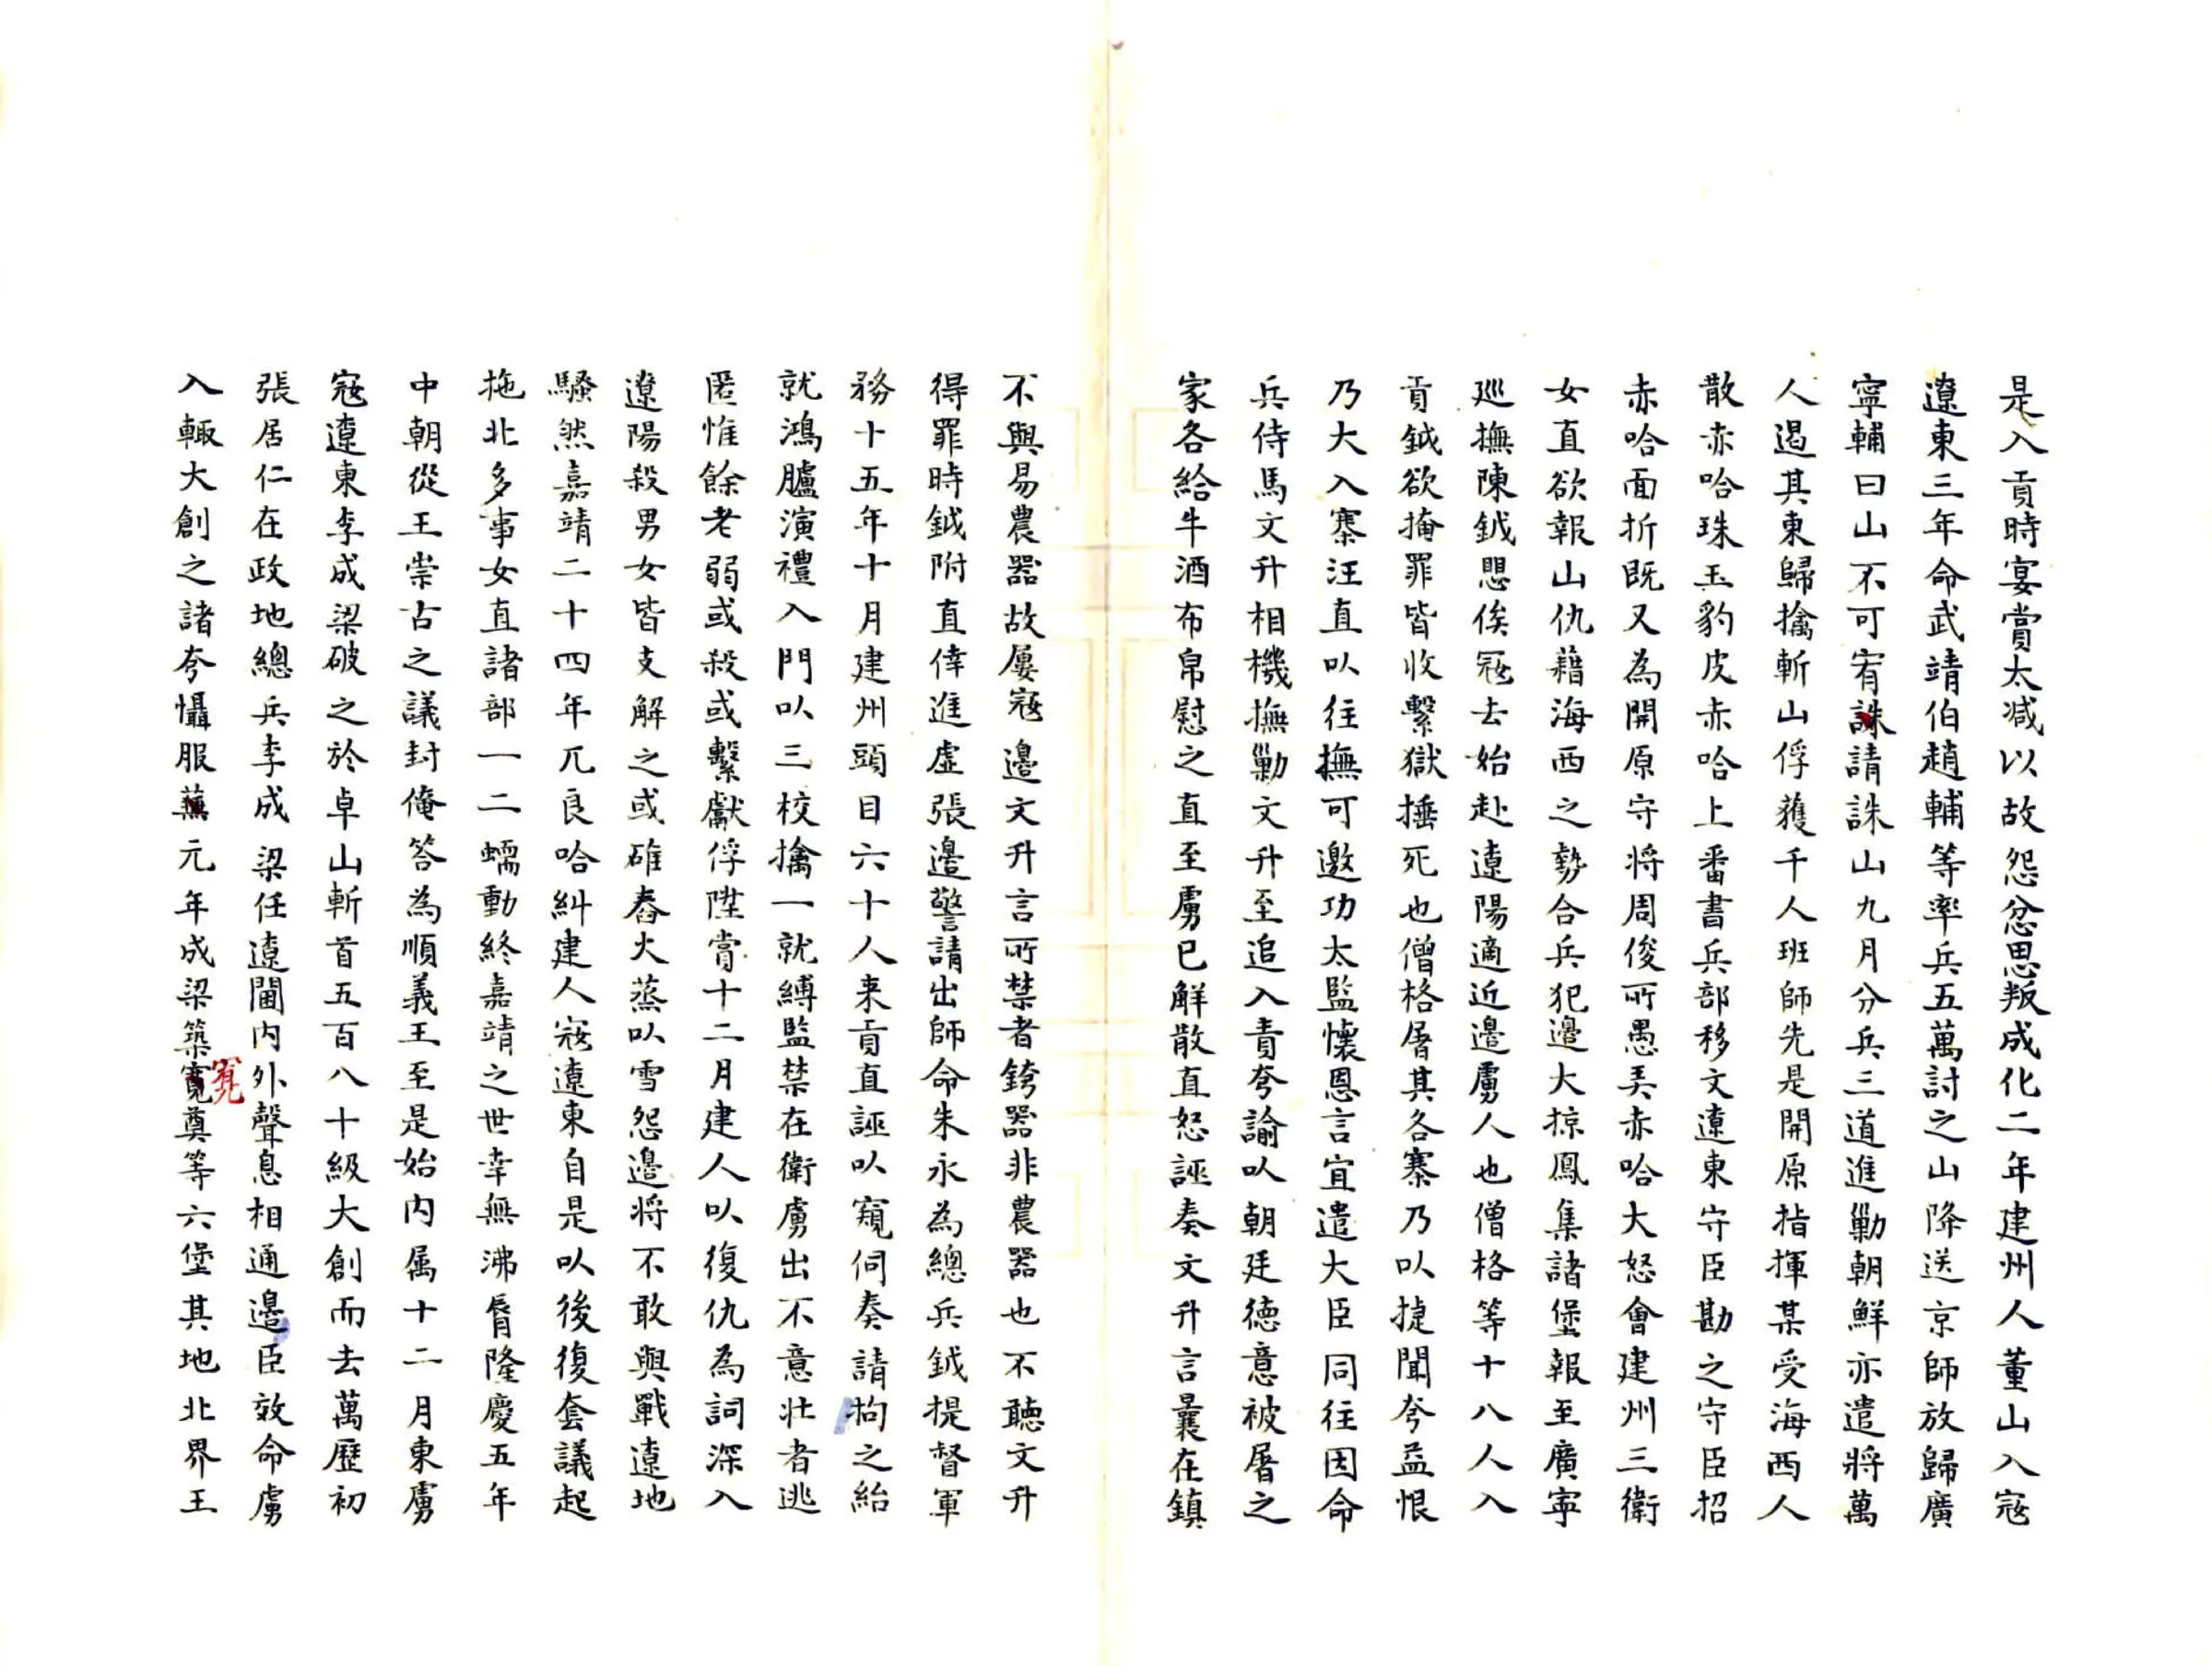 是入貢時宴賞太减以故怨忿思叛成化二年建州人董山入寇
遼東三年命武靖伯趙輔等率兵五萬討之山降送京師放歸廣
寧輔曰山不可宥誅請誅山九月分兵三道進勦朝鮮亦遣將萬
人遏其東歸擒斬山俘獲千人班師先是開原指揮某受海西人
散赤哈珠玉豹皮赤哈上番書兵部移文遼東守臣勘之守臣招
赤哈面折既又為開原守将周俊所愚弄赤哈大怒會建州三衛
女直欲報山仇藉海西之勢合兵犯邊大掠鳳集諸堡報至廣寧
巡撫陳鉞愳俟寇去始赴遼陽適近邊虜人也僧格等十八人入
貢鉞欲掩罪皆收繫獄捶死也僧格屠其各寨乃以捷聞夸益恨
乃大入寨汪直以往撫可邀功太監懷恩言宜遣大臣同往因命
兵侍馬文升相機撫勦文升至追入責夸諭以朝廷德意被屠之
家各給牛酒布帛慰之直至虜已解散直怒誣奏文升言曩在鎮
不與易農器故屢寇邊文升言所禁者銙器非農器也不聽文升
得罪時鉞附直倖進虛張邊警請出師命朱永為總兵鉞提督軍
務十五年十月建州頭目六十人来貢直誣以窺伺奏請拘之紿
就鴻臚演禮入門以三校擒一就縛監禁在衛虜出不意壮者逃
匿惟餘老弱或殺或繫獻俘陞賞十二月建人以復仇為詞深入
遼陽殺男女皆支解之或碓舂火蒸以雪怨邊将不敢與戰遼地
騷然嘉靖二十四年兀良哈糾建人寇遼東自是以後復套議起
拖北多事女直諸部一二蠕動終嘉靖之世幸無沸脣隆慶五年
中朝從王崇古之議封俺答為順義王至是始内属十二月東虜
寇遼東李成梁破之於卓山斬首五百八十級大創而去萬歷初
張居仁在政地總兵李成梁任遼閫内外聲息相通邊臣效命虜
入輙大創之諸夸懾服蕪元年成梁築寬奠等六堡其地北界王
寛